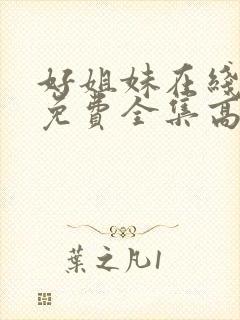 好姐妹在綫
免費全集高
葉之凡1